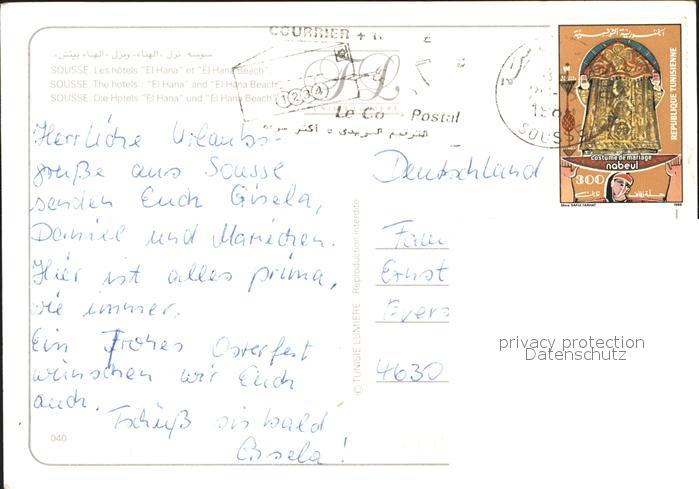 COURRIER +
سوسه. نزل «الهناء» ونزل «الهناء بيتش».
SOUSSE. Les hôtels "El Hana" et "El Hana Beach"
SOUSSE. The hotels : "El Hana" and "El Hana Beach"
SOUSSE. Die Hotels "El Hana" und "El Hana Beach"
1234
Le Co Postal
الترقيم البريدي = أكثر سرعة
SOUSSE
الجمهورية التونسية
REPUBLIQUE TUNISIENNE
costume de mariage
nabeul
300
Deutschland
Fam
Ernst
Evers
4630
Herrliche Urlaubs-
grüße aus Sousse
senden Euch Gisela,
Daniel und Mariechen.
Hier ist alles prima,
wie immer.
Ein Frohes Osterfest
wünschen wir Euch
auch.
Tschüß bis bald
Gisela!
© TUNISIE LUMIERE - Réproduction interdite
040
privacy protection
Datenschutz